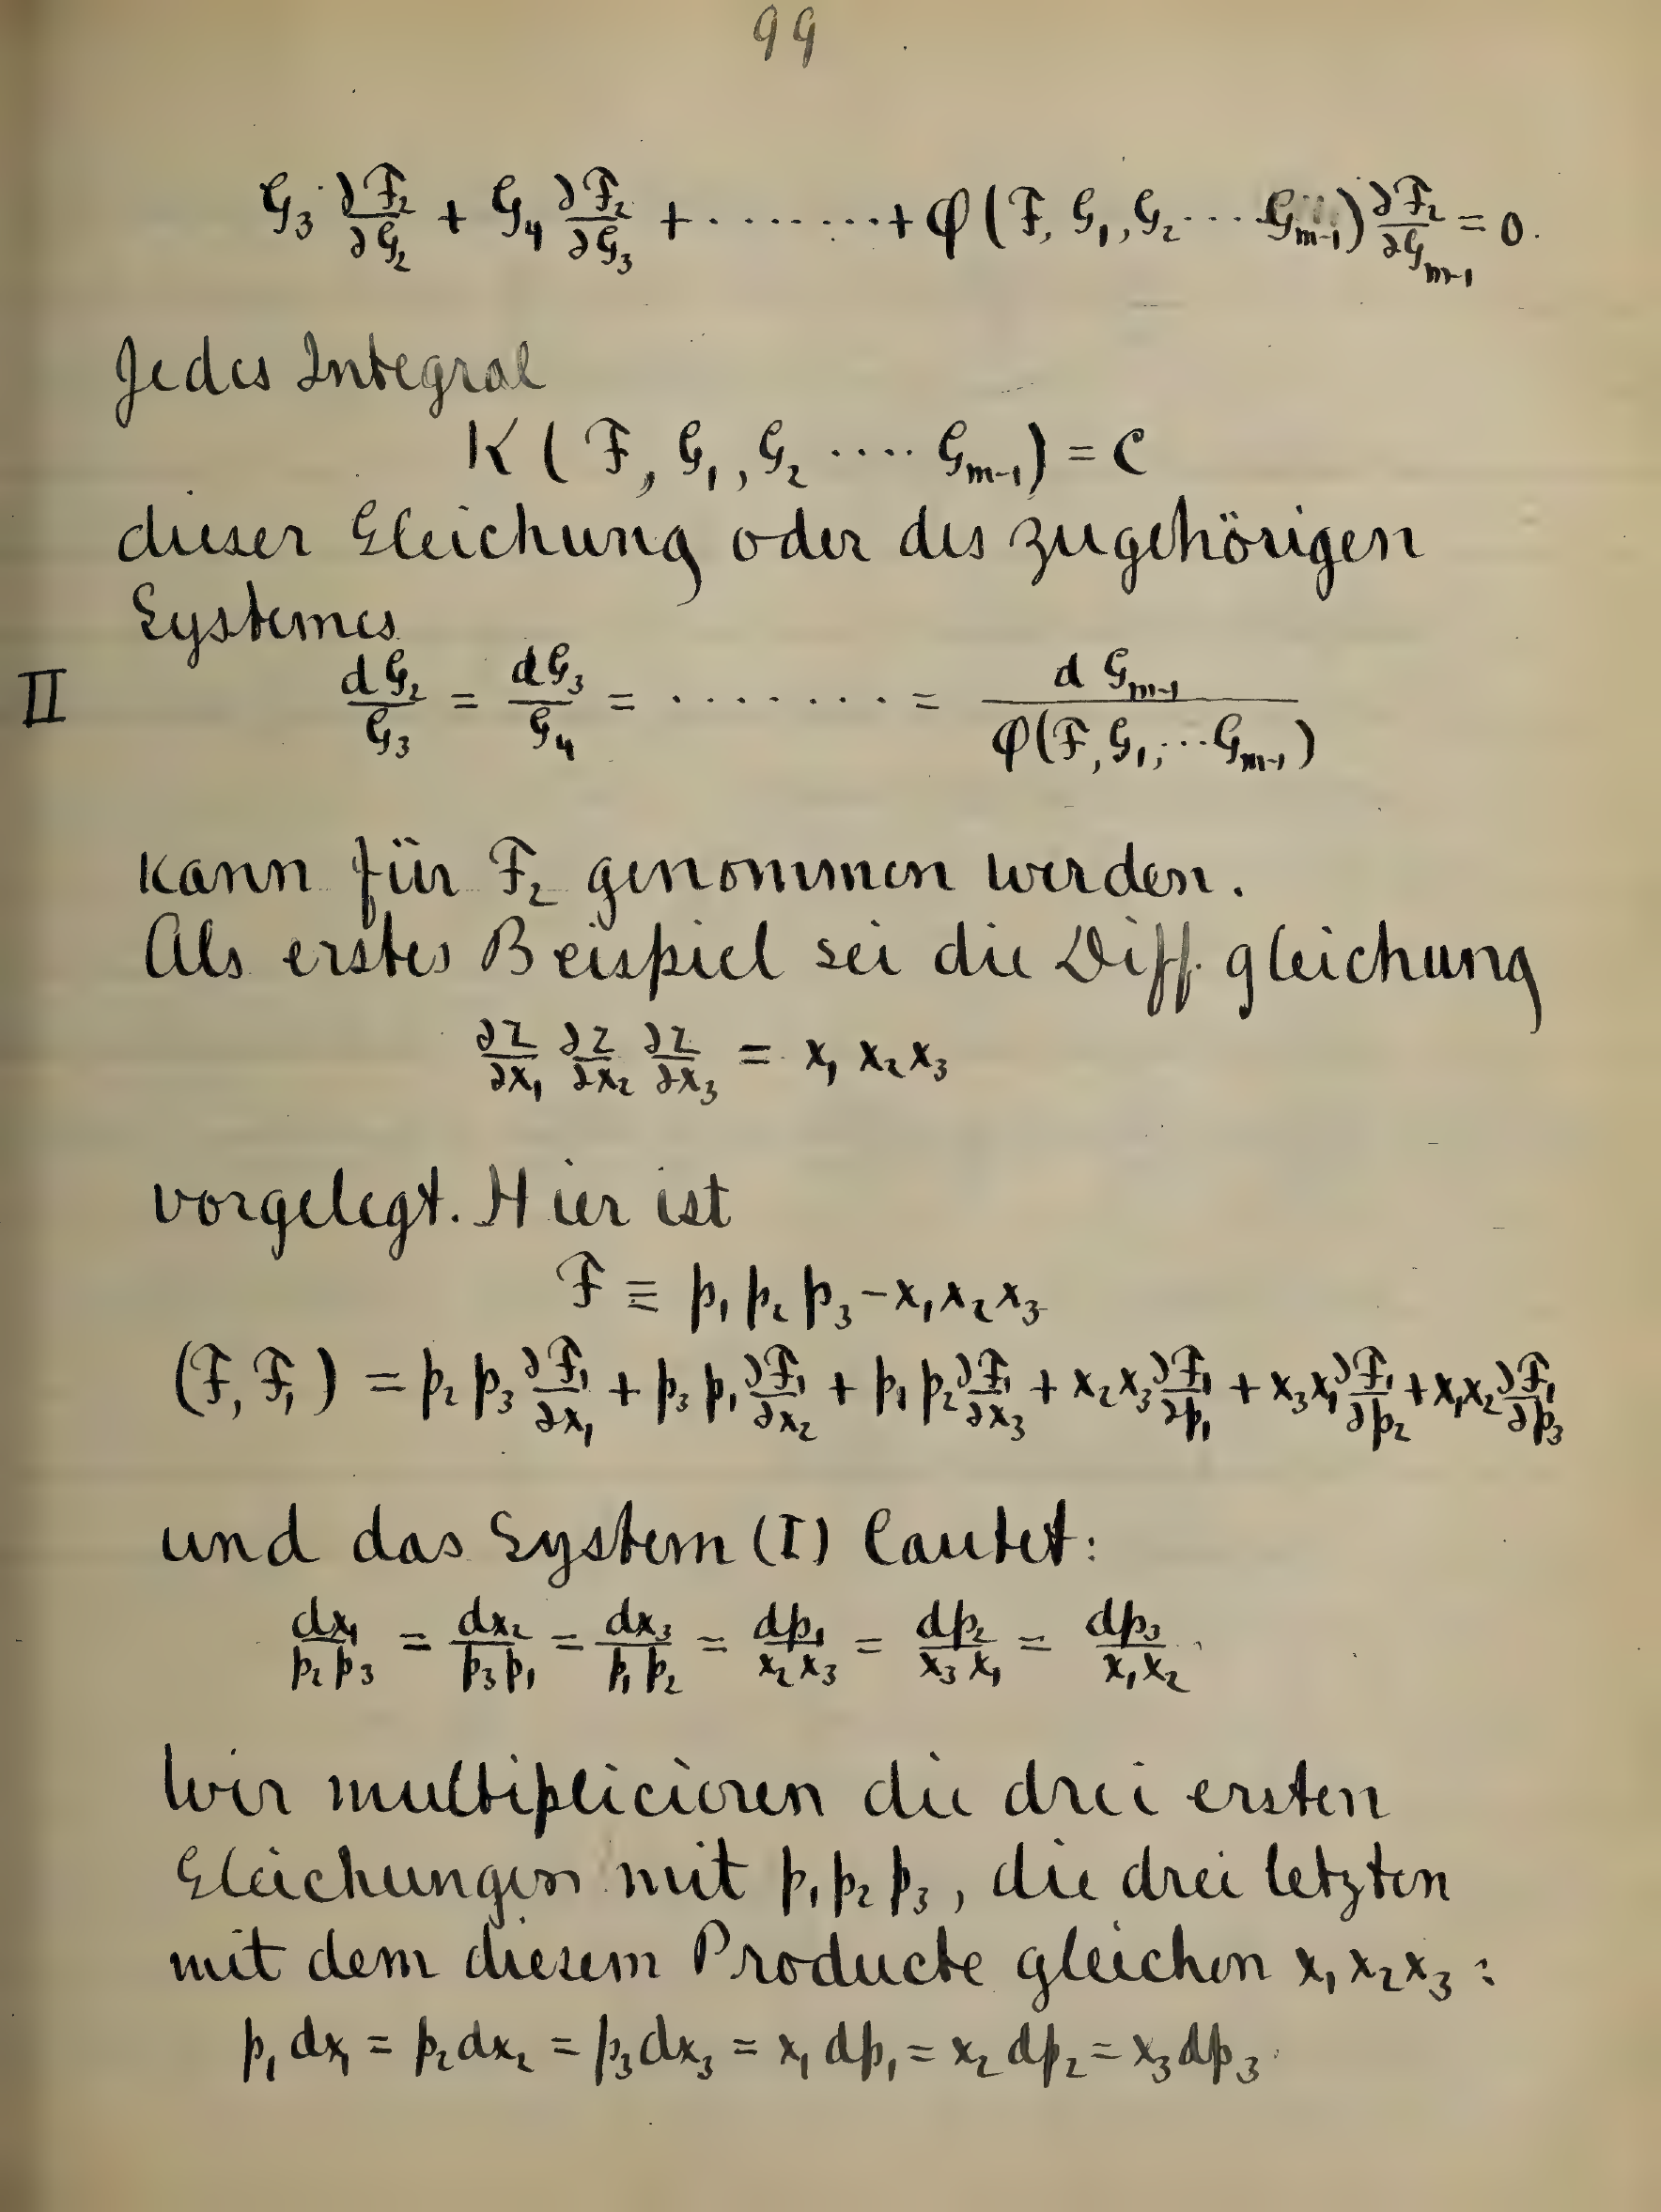 99
G₃ ∂F₂/∂G₂ + G₄ ∂F₂/∂G₃ + ········ + φ(F, G₁, G₂ ···· Gₘ₋₁) ∂F₂/∂Gₘ₋₁ = 0.
Jedes Integral
K (F, G₁, G₂ ···· Gₘ₋₁) = C
dieser Gleichung oder des zugehörigen
Systemes
II dG₂/G₃ = dG₃/G₄ = ······· = d Gₘ₋₁/φ(F, G₁, ··· Gₘ₋₁)
kann für F₂ genommen werden.
Als erstes Beispiel sei die Diff. gleichung
∂z/∂x₁ ∂z/∂x₂ ∂z/∂x₃ = x₁ x₂ x₃
vorgelegt. Hier ist
F ≡ p₁ p₂ p₃ – x₁ x₂ x₃
(F, F₁) = p₂ p₃ ∂F₁/∂x₁ + p₃ p₁ ∂F₁/∂x₂ + p₁ p₂ ∂F₁/∂x₃ + x₂ x₃ ∂F₁/∂p₁ + x₃ x₁ ∂F₁/∂p₂ + x₁ x₂ ∂F₁/∂p₃
und das System (I) lautet:
dx₁/p₂ p₃ = dx₂/p₃ p₁ = dx₃/p₁ p₂ = dp₁/x₂ x₃ = dp₂/x₃ x₁ = dp₃/x₁ x₂
Wir multiplicieren die drei ersten
Gleichungen mit p₁ p₂ p₃, die drei letzten
mit dem diesem Producte gleichen x₁ x₂ x₃ :
p₁ dx₁ = p₂ dx₂ = p₃ dx₃ = x₁ dp₁ = x₂ dp₂ = x₃ dp₃